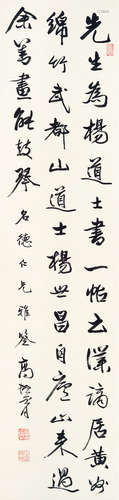 先生為楊道士書一帖云僕謫居黃
綿竹武都山道士楊世昌自廬山來過
余善畫能鼓琴
名德仁兄雅鑒 高振霄